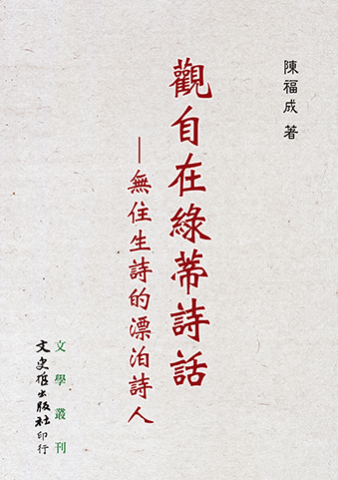 陳福成 著
觀自在綠蒂詩話
—無住生詩的漂泊詩人
文學叢刊
文史哲出版社印行